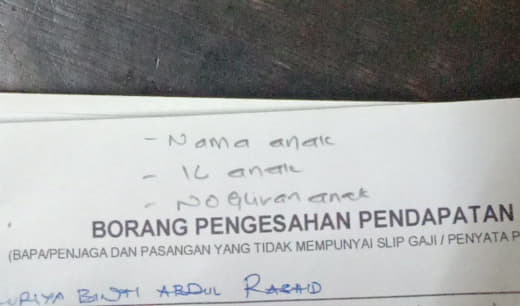 - Nama anak
- IC anak
- NO giliran anak
BORANG PENGESAHAN PENDAPATAN
(BAPA/PENJAGA DAN PASANGAN YANG TIDAK MEMPUNYAI SLIP GAJI / PENYATA P
URIYA BINTI ABDUL RASAID